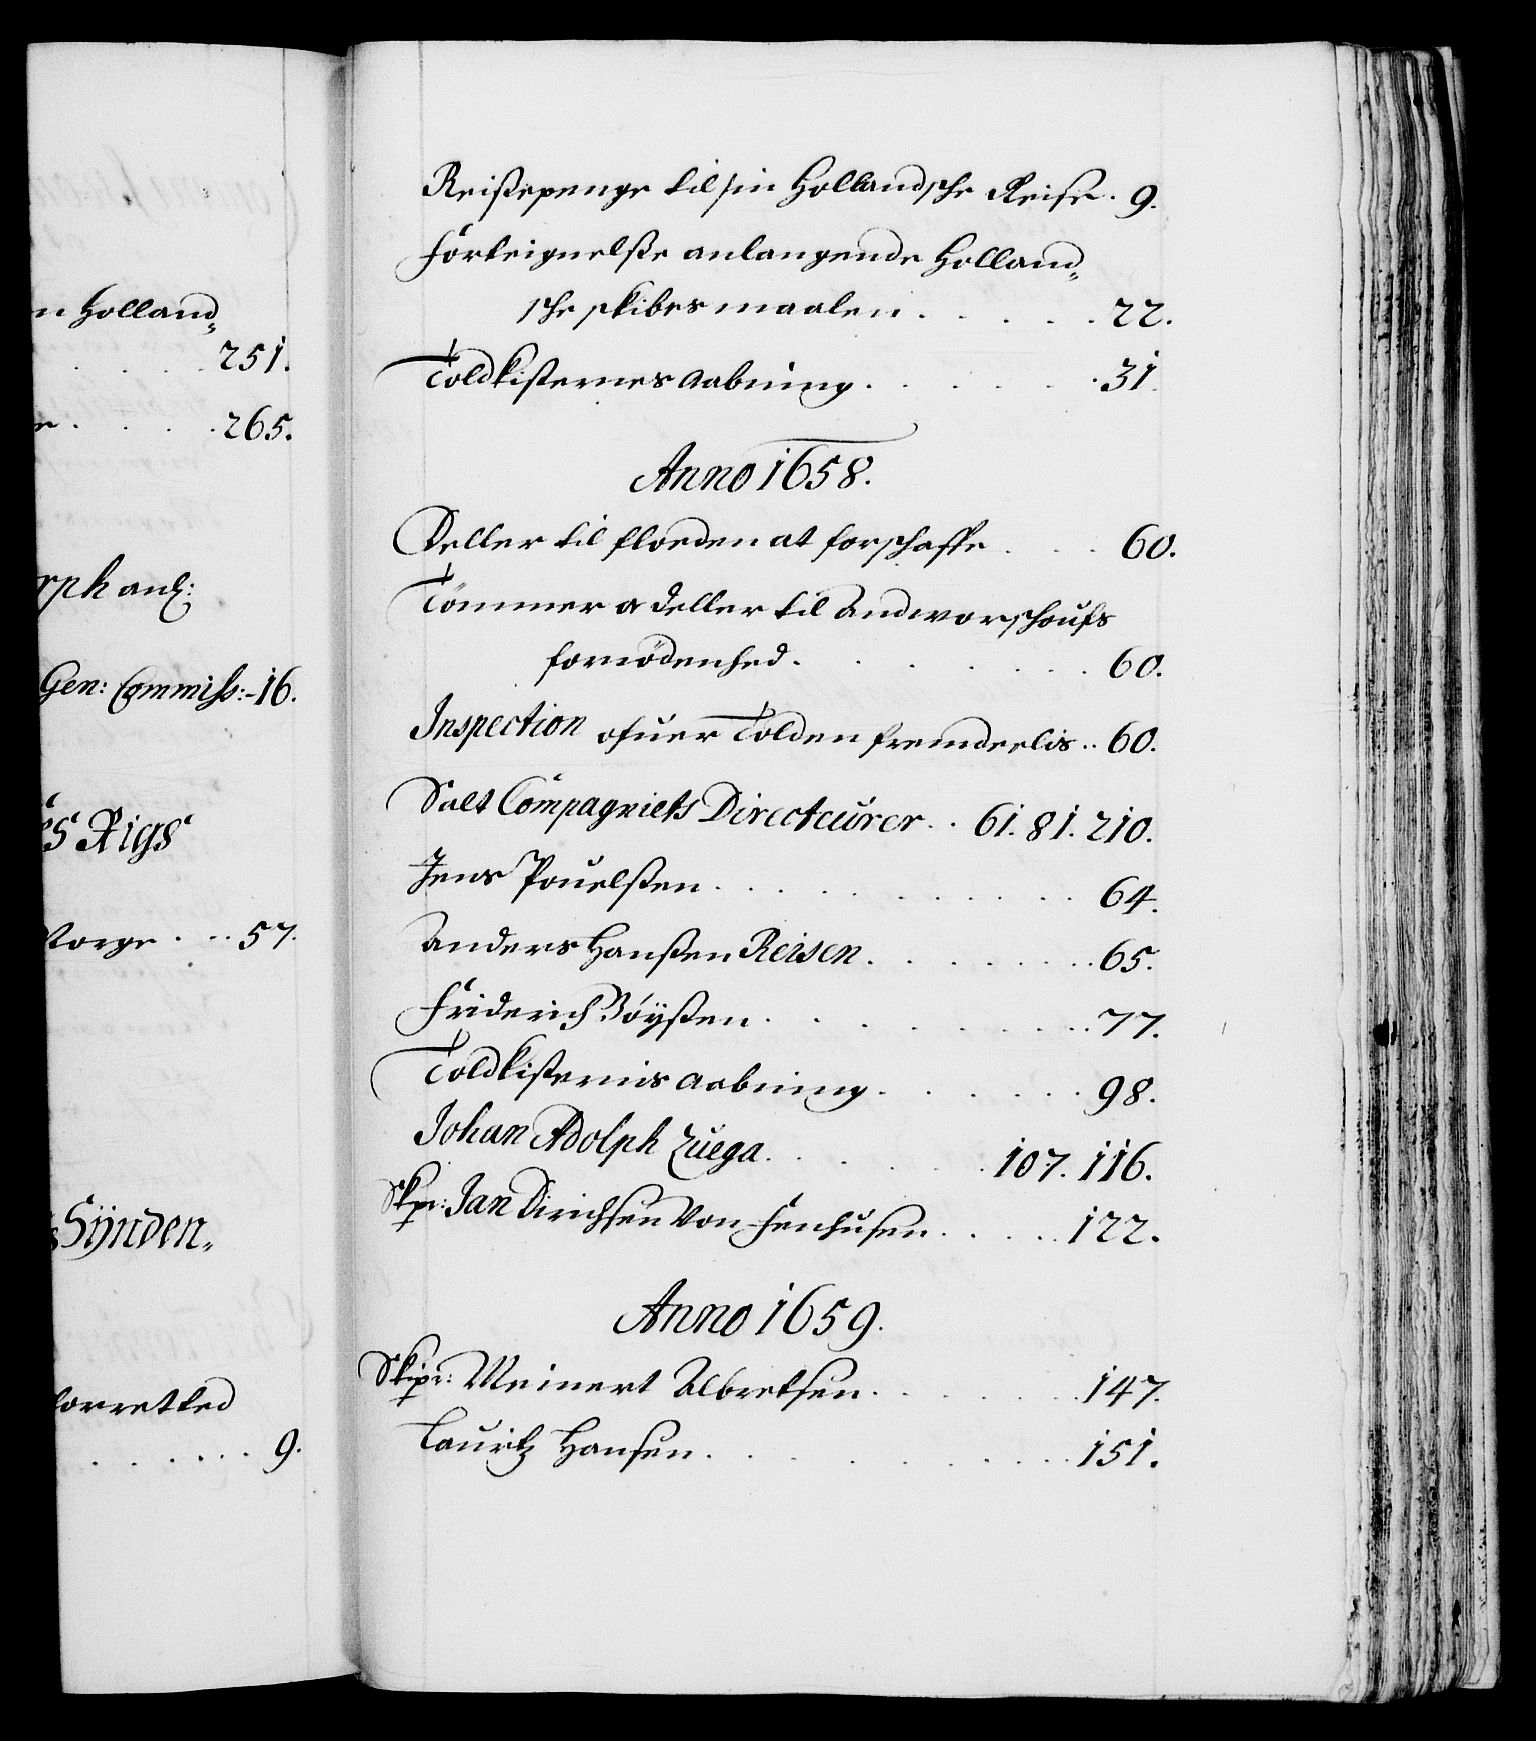 n Holland„
. . . . 251.
e . . . . 265.
rph anl:
Gen: Commiss:-16.
es Rigs
Norge . . . 57.
Sÿnden„
forretted
. . . . . . 9.
Reissepenge til sin Hollandsche Reise . 9.
Forteignelsse anlangende Holland„
sche skibes maalen . . . . . 22.
Toldkisternes Aabning . . . . . . 31.
Anno 1658.
Deller til floeden at forschaffe . . . 60.
Tömmer oc deller til Andvorschoufs
fornödenhed . . . . . . . 60.
Inspection ofuer Tolden fremdeelis . . 60.
Salt Compagniets Directeurer . . 61. 81. 210.
Jens Pouelssen . . . . . . . . . . 64.
Anders Hanssen Reisen . . . . . . . . 65.
Friderich Böyssen . . . . . . . . . . 77.
Toldkisternis Aabning . . . . . . 98.
Johan Adolph Zuega . . . . . . . 107. 116.
Skpr: Jan Dirichsen Von Fenhusen . . . . . 122.
Anno 1659.
Skipr: Meinert Albretsen . . . . . . . 147.
Lauritz Hansen . . . . . . . . . . 151.